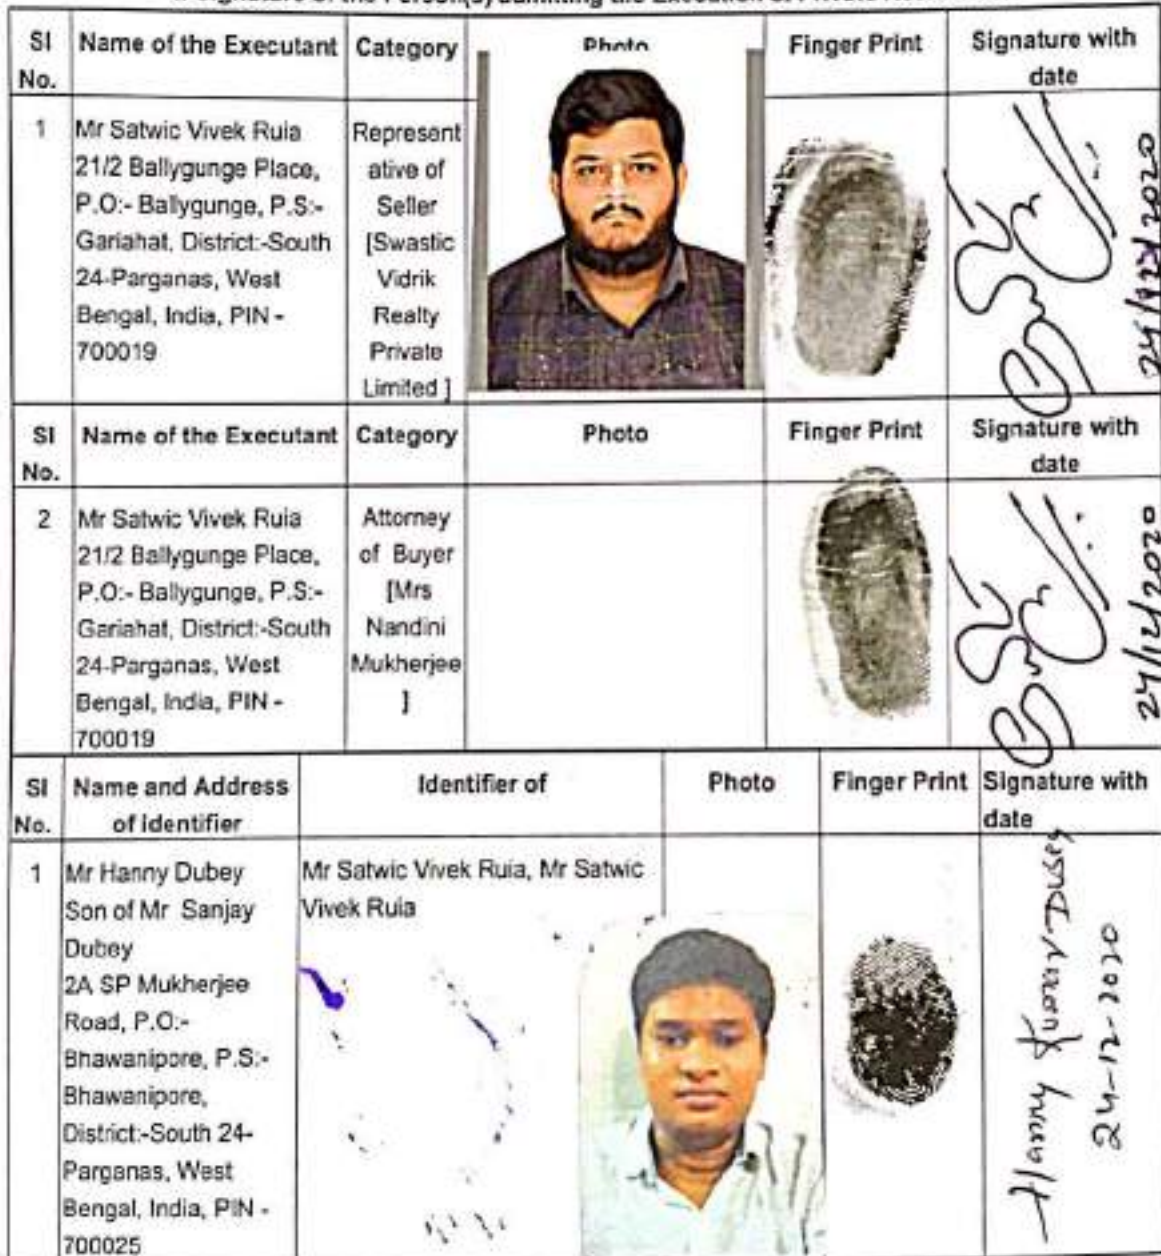 Signature of the Person(s) admitting the Execution
Sl No. Name of the Executant Category Photo Finger Print Signature with date
1 Mr Satwic Vivek Ruia
21/2 Ballygunge Place,
P.O:- Ballygunge, P.S:-
Gariahat, District:-South
24-Parganas, West
Bengal, India, PIN -
700019
Represent
ative of
Seller
[Swastic
Vidrik
Realty
Private
Limited ]
24/12/2020
Sl No. Name of the Executant Category Photo Finger Print Signature with date
2 Mr Satwic Vivek Ruia
21/2 Ballygunge Place,
P.O:- Ballygunge, P.S:-
Gariahat, District:-South
24-Parganas, West
Bengal, India, PIN -
700019
Attorney
of Buyer
[Mrs
Nandini
Mukherjee
]
24/12/2020
Sl No. Name and Address of identifier Identifier of Photo Finger Print Signature with date
1 Mr Hanny Dubey
Son of Mr Sanjay
Dubey
2A SP Mukherjee
Road, P.O:-
Bhawanipore, P.S:-
Bhawanipore,
District:-South 24-
Parganas, West
Bengal, India, PIN -
700025
Mr Satwic Vivek Ruia, Mr Satwic
Vivek Ruia
Hanny Kumar Dubey
24-12-2020